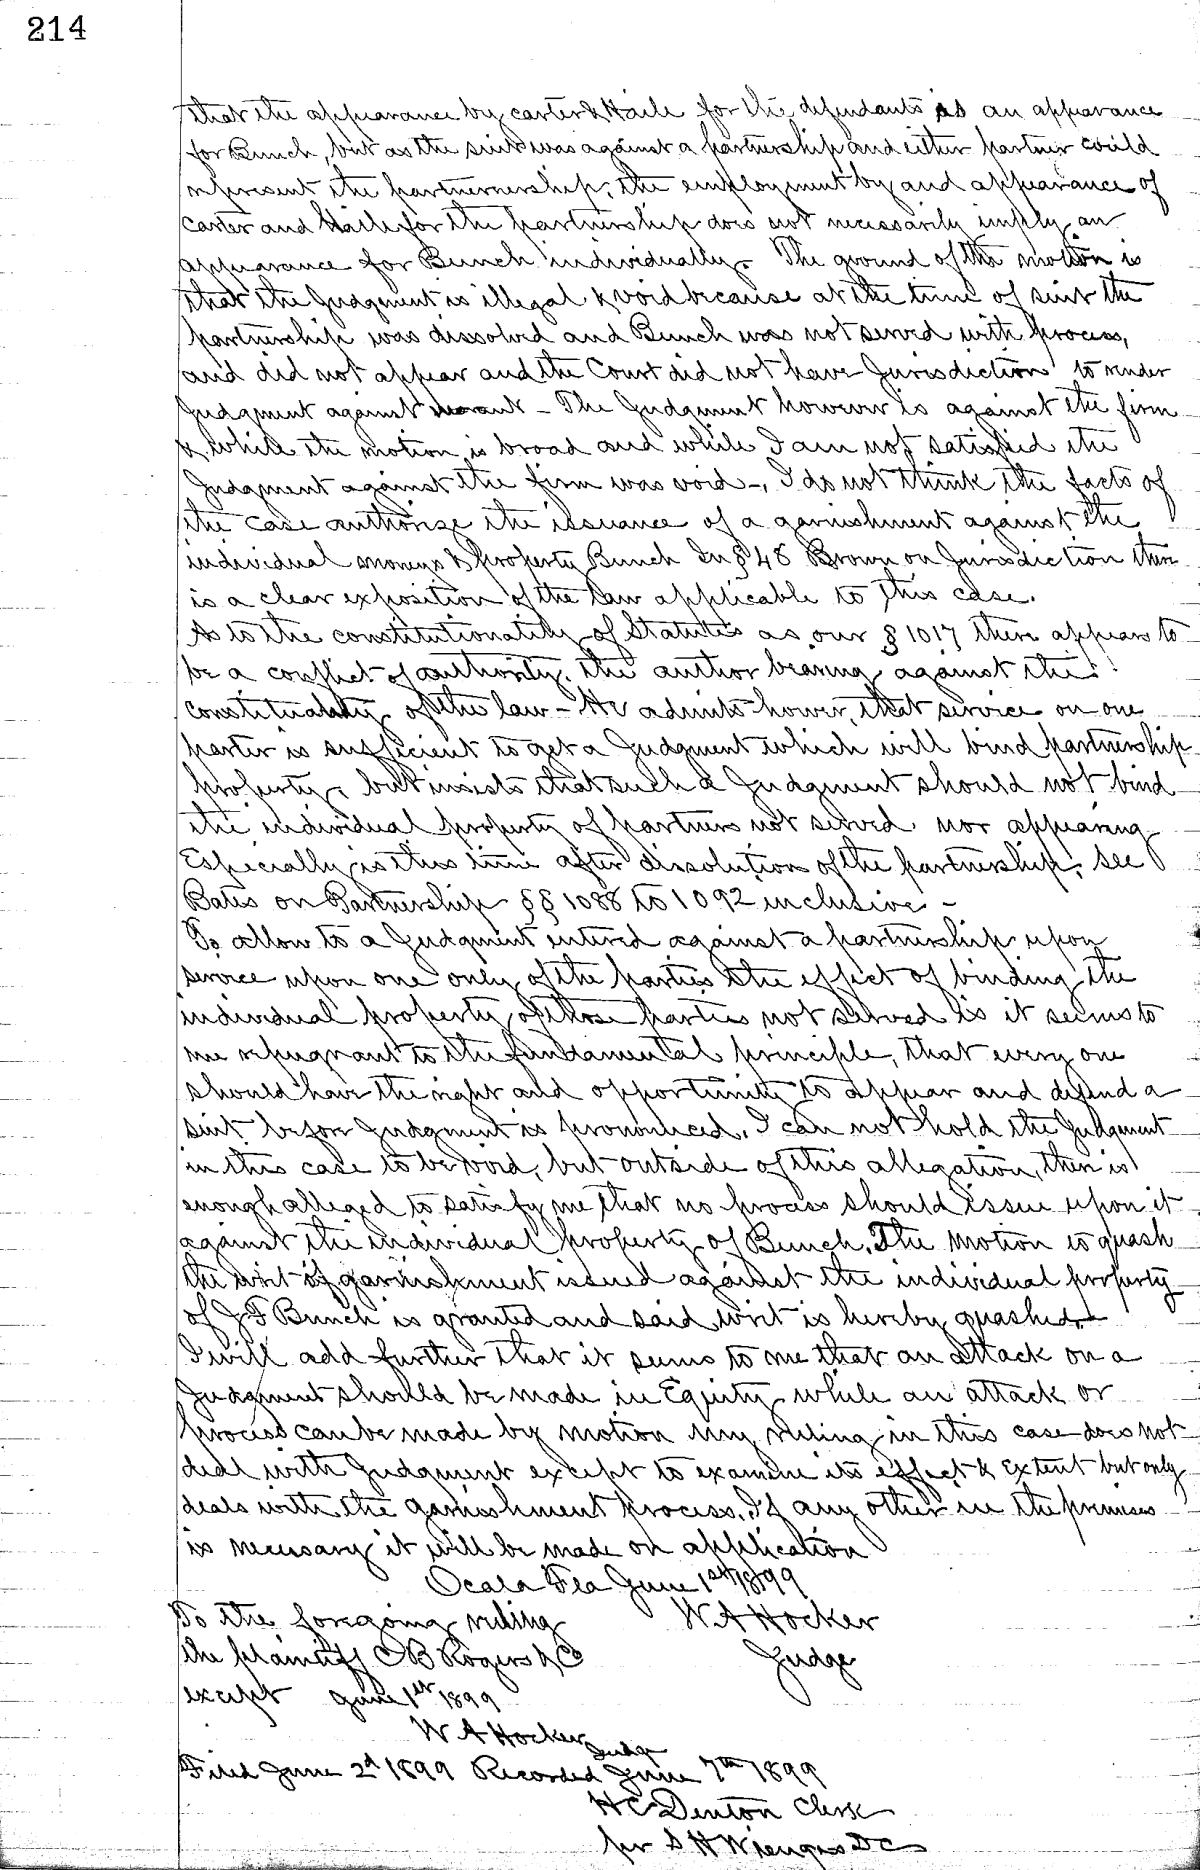 214
that the appearance by Carter & Haile for the defendants as an appearance
for Bunch, but as the suit was against a partnership and either partner could
represent the partnernership, the employment by and appearance of
Carter and Haile for the partnership does not necessarily imply an
appearance for Bunch individually. The ground of the motion is
that the Judgment is illegal & void because at the time of suit the
partnership was dissolved and Bunch was not served with process,
and did not appear and the Court did not have Jurisdiction to render
Judgment against movant - The Judgment however is against the firm
& while the motion is broad and while I am not satisfied the
Judgment against the firm was void -, I do not think the facts of
the case authorize the issuance of a garnishment against the
individual moneys & property Bunch In § 48 Brown on Jurisdiction there
is a clear exposition of the law applicable to this case.
As to the constitutionality of Statutes as our § 1017 there appears to
be a conflict of authority, the author bearing against the
constituality of the law - He admits hower, that service on one
parter is sufficient to get a Judgment which will bind partnership
property, but insists that such a Judgment should not bind
the individual property of partners not served nor appearing
Especially is this true after dissolution of the partnership, see
Bates on Partnership §§ 1088 to 1092 inclusive -
To allow to a Judgment entered against a partnership upon
service upon one only of the parties the effect of binding the
individual property of those parties not served is it seems to
me repugnant to the fundamental principle, that every one
should have the right and opportunity to appear and defend a
suit before Judgment is pronounced. I can not hold the Judgment
in this case to be void, but outside of this allegation, there is
enough alleged to satisfy me that no process should issue upon it
against the individual property of Bunch. The motion to quash
the writ of garnishment issued against the individual property
of J F Bunch is granted and said writ is hereby quashed -
I will add further that it seems to me that an attack on a
Judgment should be made in Equity while an attack or
process can be made by motion My ruling in this case does not
deal with Judgment except to examine its effect & extent but only
deals with the garnishment process. If any other in the premises
is necessary it will be made on application
Ocala Fla June 1st 1899
To the foregoing ruling W A Hocker
the plaintiff C B Rogers & Co Judge
except June 1st 1899
W A Hocker Judge
Filed June 2d 1899 Recorded June 7th 1899
H C Denton Clerk
per S H DC